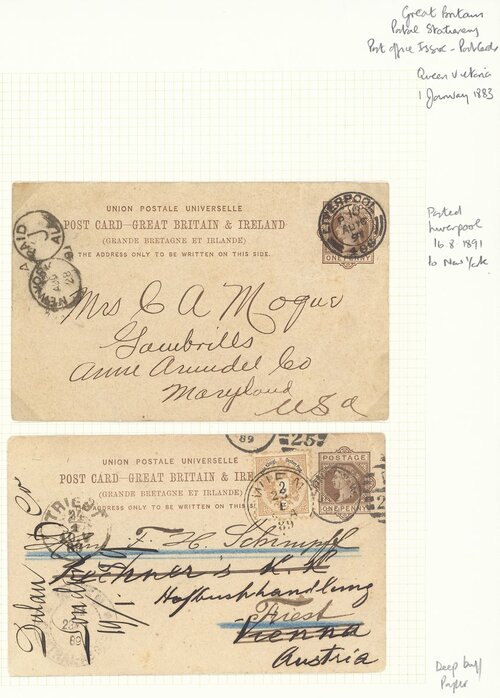 Great Britain
Postal Stationery
Post office Issue - Postcards
Queen Victoria
1 January 1883
Posted
Liverpool
16 8 1891
to New York
UNION POSTALE UNIVERSELLE
POST CARD-GREAT BRITAIN & IRELAND
(GRANDE BRETAGNE ET IRLANDE)
THE ADDRESS ONLY TO BE WRITTEN ON THIS SIDE.
LIVERPOOL
ONE PENNY
PAID
NEW YORK
Mrs C A Mogue
Gambrills
Anne Arundel Co
Maryland
USA
UNION POSTALE UNIVERSELLE
POST CARD-GREAT BRITAIN & IRE
(GRANDE BRETAGNE ET IRLANDE)
ADDRESS ONLY TO BE WRITTEN ON THIS
89
25
POSTAGE
ONE PENNY
2
WIEN
89
TRIEST
89
Dulau & Co
London
19/1
F. H. Schimpff
Hofbuchhandlung
Triest
Vienna
Austria
Deep buff
Paper